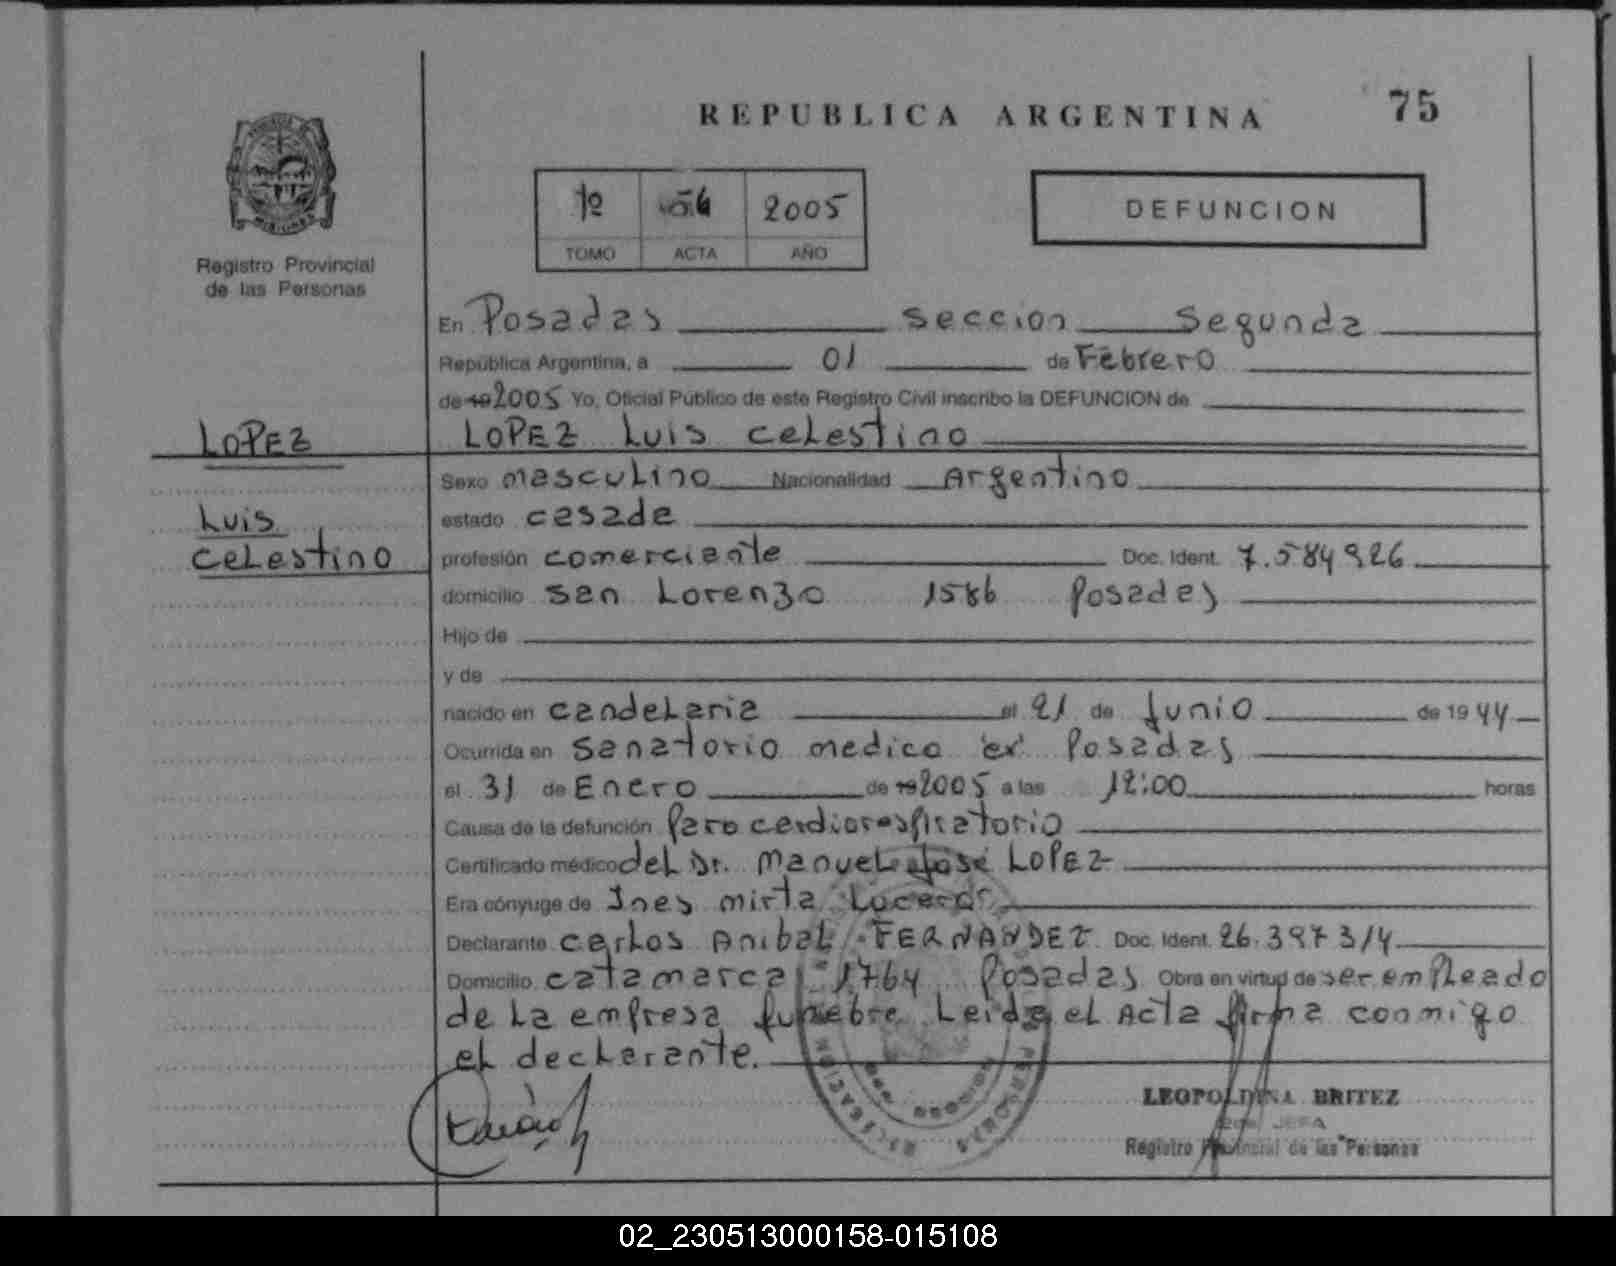 REPUBLICA ARGENTINA
75
1º 2005
TOMO ACTA AÑO
DEFUNCION
Registro Provincial
de las Personas
En Posadas seccion Segunda
República Argentina, a 01 de Febrero
de 19 2005 Yo, Oficial Público de este Registro Civil inscribo la DEFUNCION de
LOPEZ
LOPEZ Luis celestino
Sexo masculino Nacionalidad Argentino
Luis
estado casade
celestino
profesión comerciante Doc. Ident. 7.584926
domicilio san Lorenzo 1586 Posadas
Hijo de
y de
nacido en candelaria el 21 de Junio de 1944
Ocurrida en sanatorio medico Posadas
el 31 de Enero de 19 2005 a las 12:00 horas
Causa de la defunción paro cardiorespiratorio
Certificado médico del Dr. Manuel José LOPEZ
Era cónyuge de Ines mirta Lucero
Declarante carlos Anibal FERNANDEZ Doc. Ident. 26.397314
Domicilio catamarca 1764 Posadas Obra en virtud de ser empleado
de la empresa funebre Leida el Acta firma conmigo
el declarante.
LEOPOLDINA BRITEZ
JEFA
Registro Provincial de las Personas
02_230513000158-015108